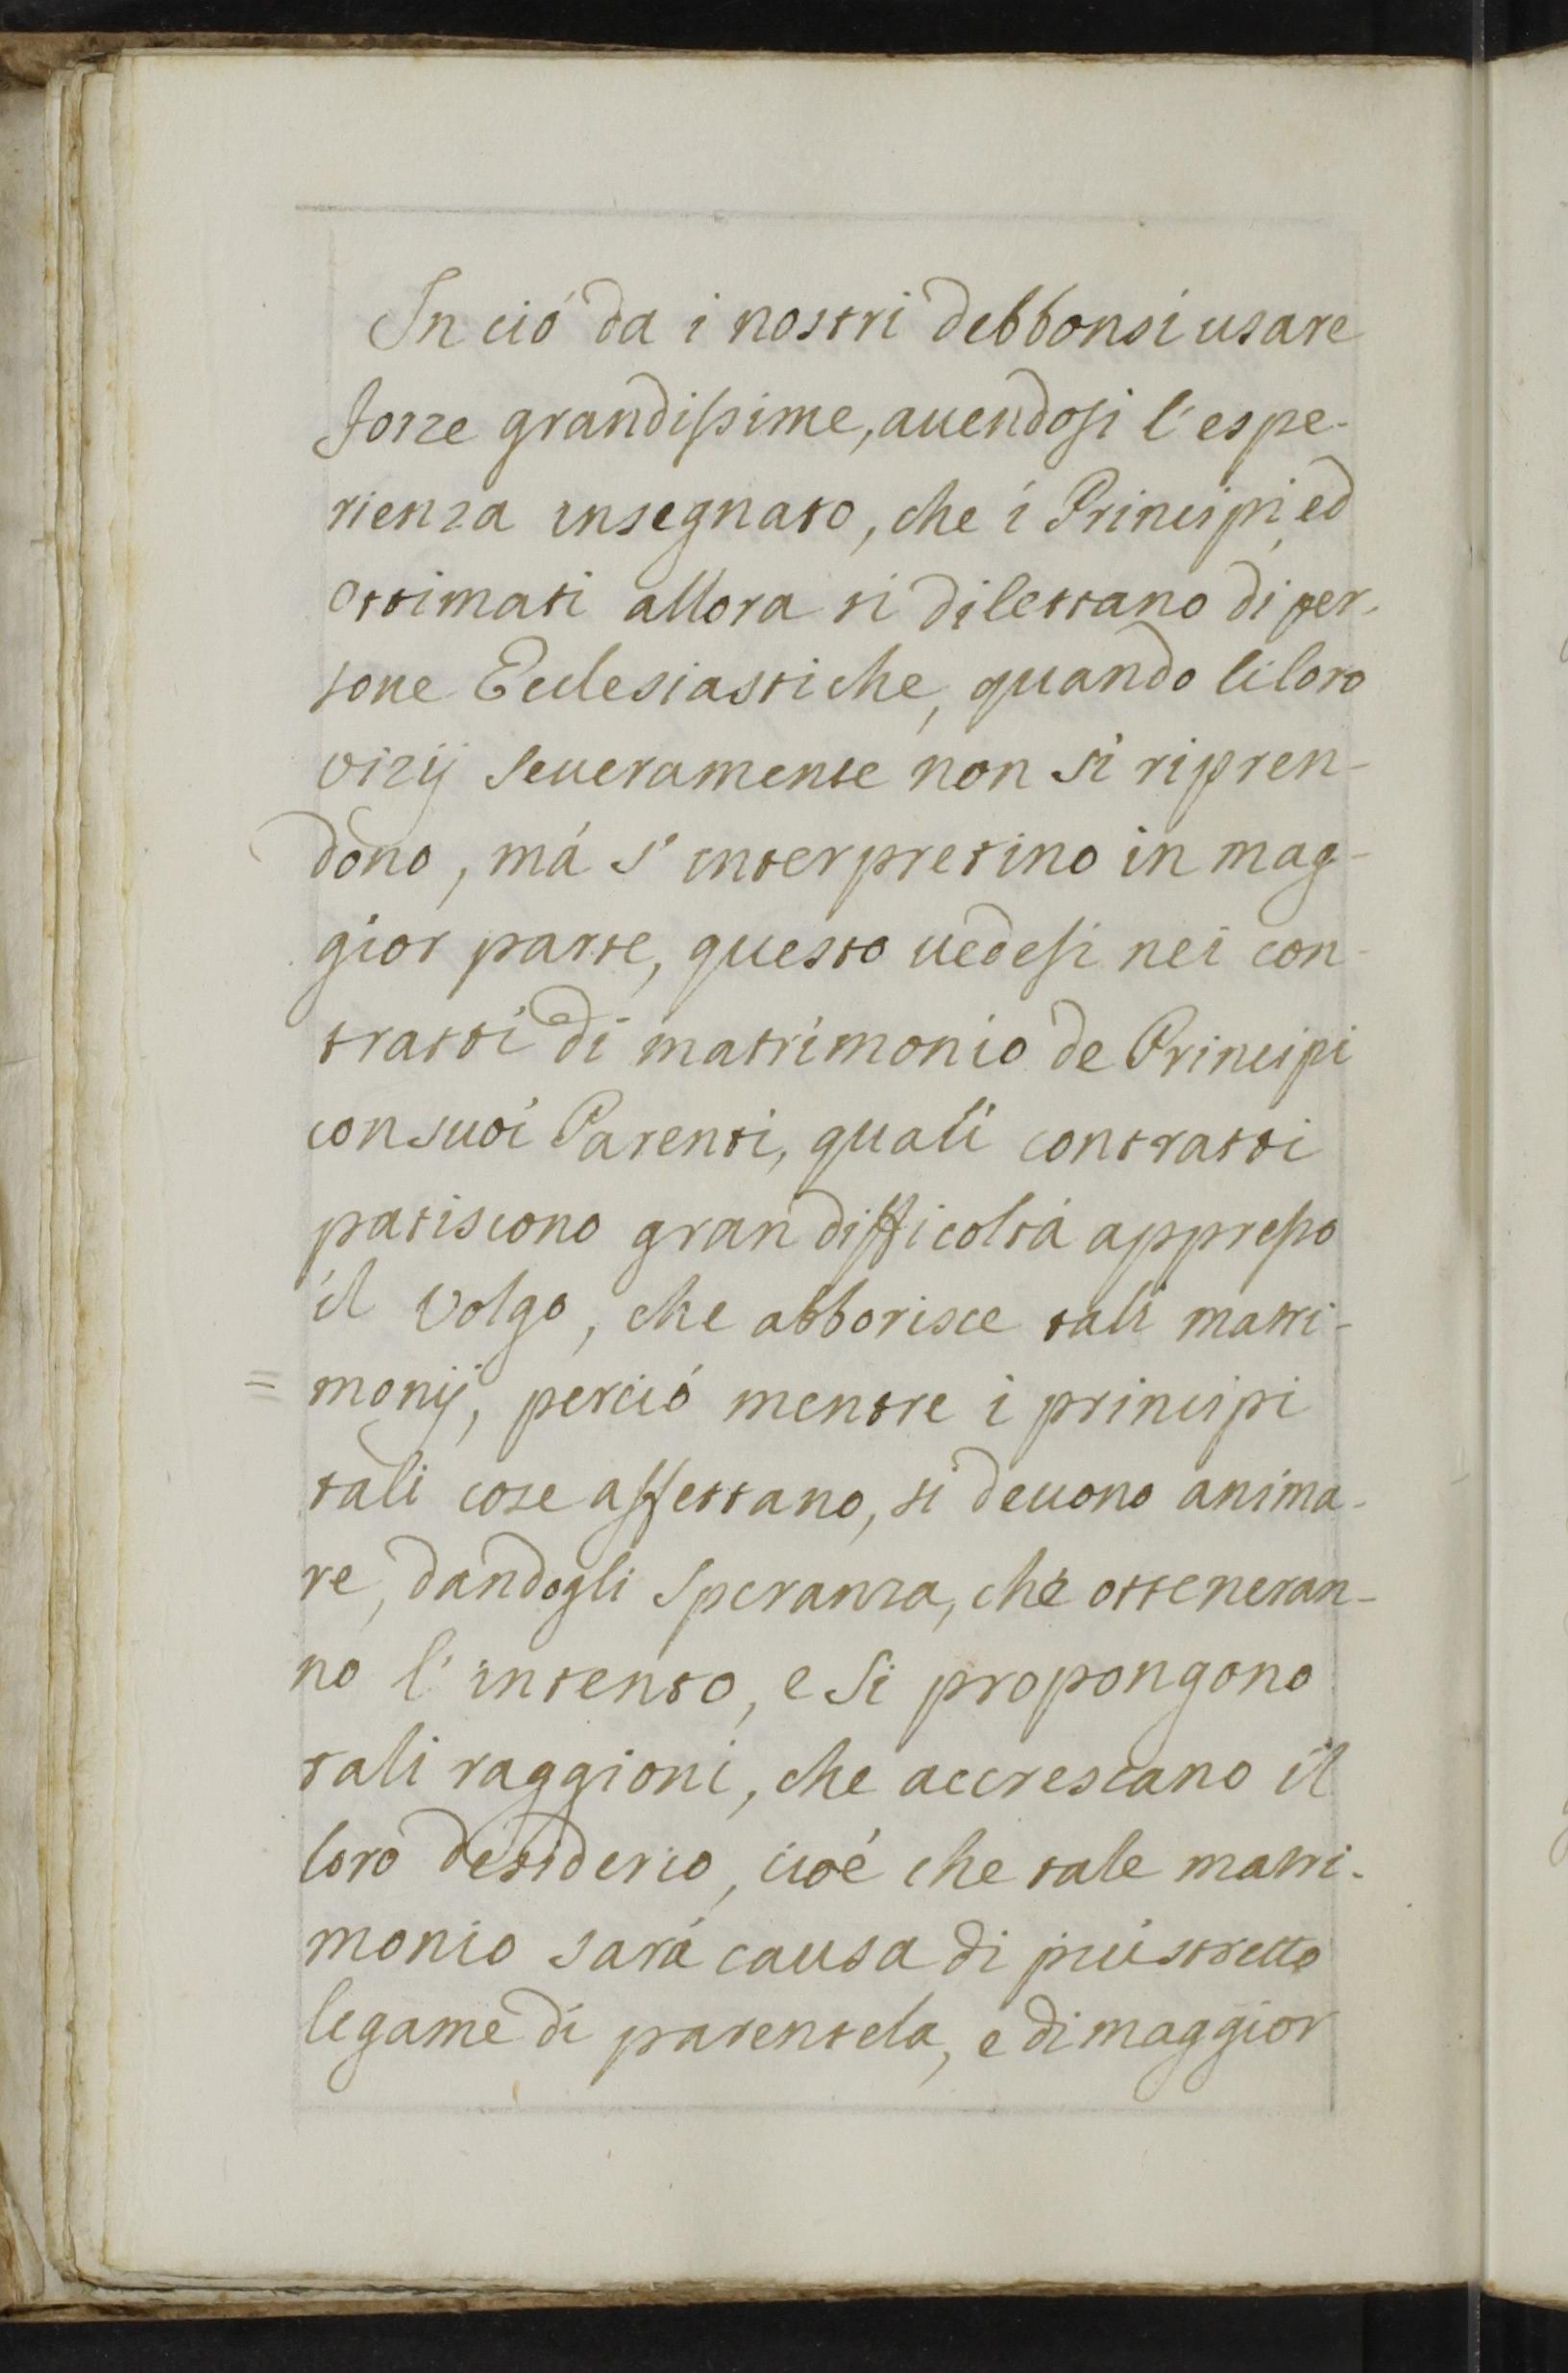 In ció da i nostri debbonsi usare
forze grandissime, auendosi l'espe-
rienza insegnato, che i Principi, ed
ottimati allora si dilettano di per-
sone Ecclesiastiche, quando li loro
vizij seueramente non si ripren-
dono, má s'interpretino in mag-
gior parte, questo uedesi nei con-
tratti di matrimonio de Principi
con suoi Parenti, quali contratti
patiscono gran difficoltá appresso
il volgo, che abborisce tali matri-
= monij, perció mentre i principi
tali cose affettano, si deuono anima-
re, dandogli speranza, che otteneran-
no l'intento, e si propongono
tali raggioni, che accrescano il
loro desiderio, cioé che tale matri-
monio sará causa di piú stretto
legame di parentela, e di maggior